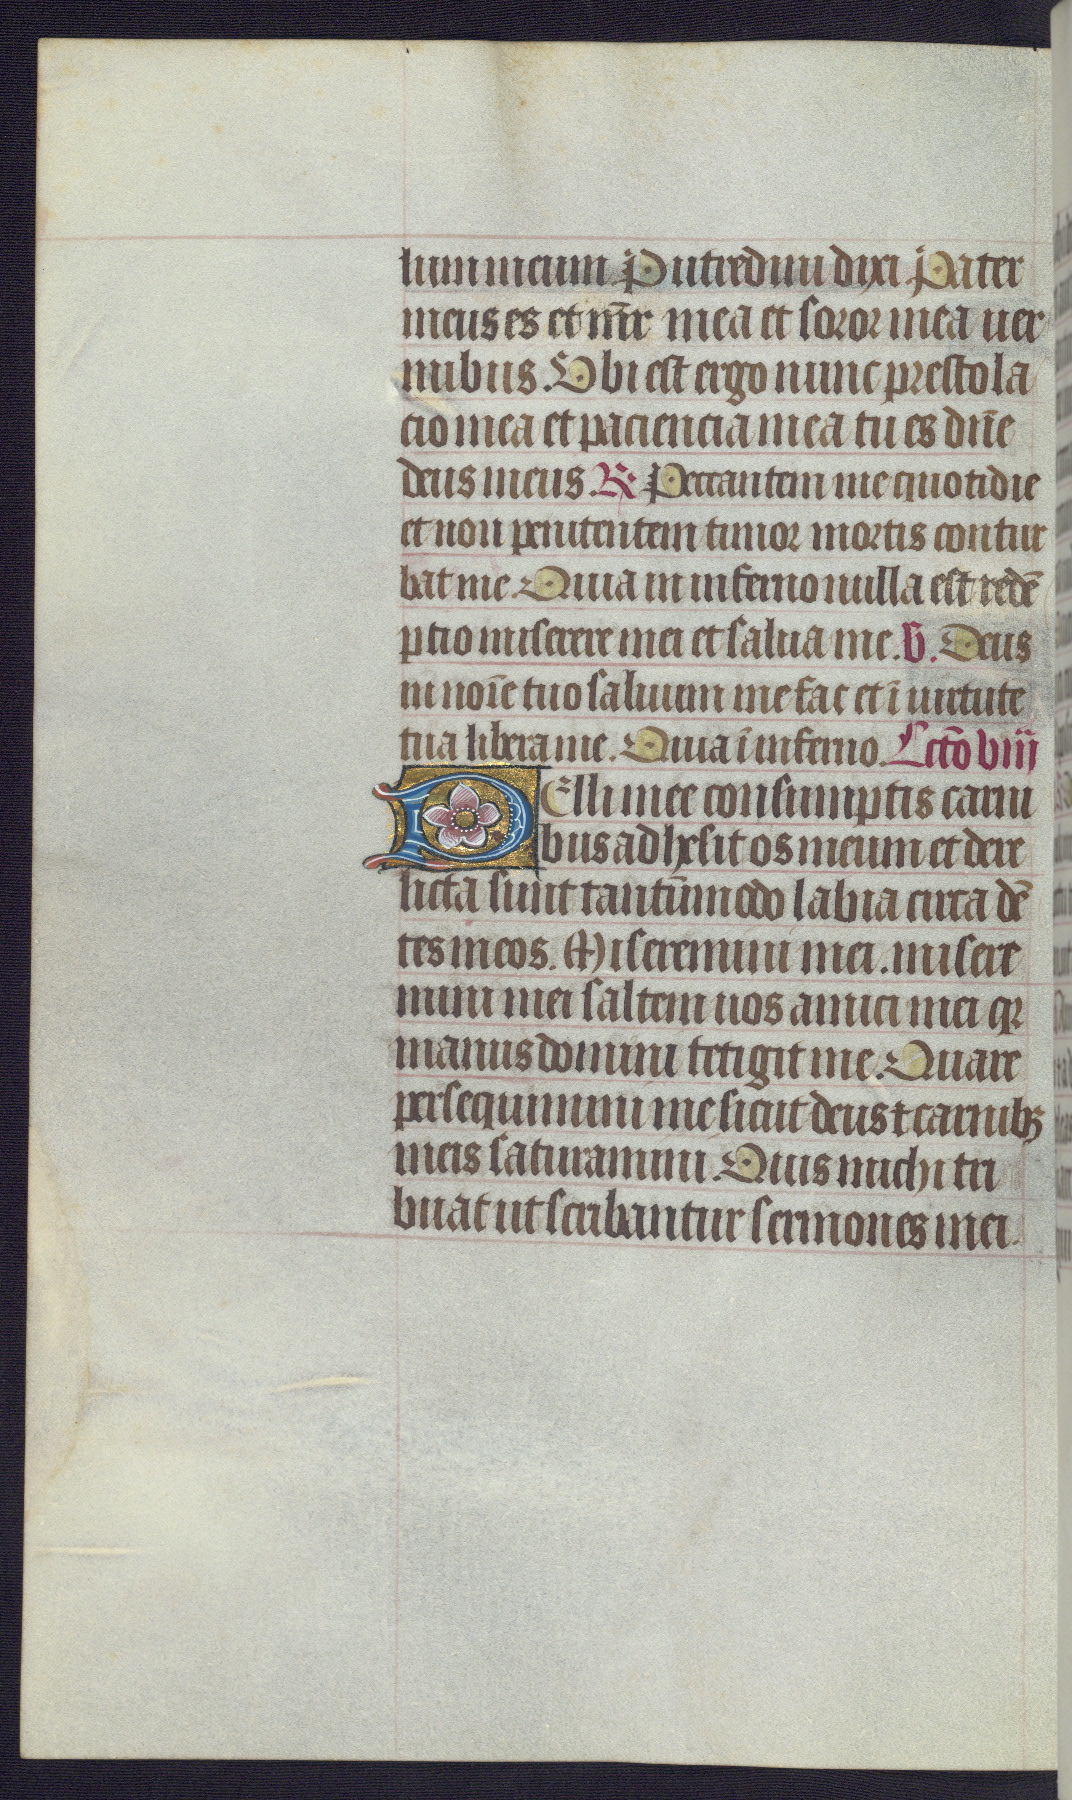 lum meum. Putredini dixi. Pater
meus es et mr̄ mea et soror mea uer
mibus. Vbi est ergo nunc prestola
cio mea et paciencia mea tu es dn̄e
deus meus. R. Peccantem me quotidie
et non penitentem timor mortis contur
bat me. Quia in inferno nulla est redē
ptio miserere mei et salua me. V. Deus
in noīe tuo saluum me fac et ī uirtute
tua libera me. Quia ī inferno. Lectō viii
Pelli mee consumptis carni
bus adhesit os meum et dere
licta sunt tantūmodo labia circa dē
tes meos. Miseremini mei. misere
mini mei saltem uos amici mei qꝛ
manus domini tetigit me. Quare
persequimini me sicut deus ⁊ carnibꝫ
meis saturamini. Quis michi tri
buat ut scribantur sermones mei.